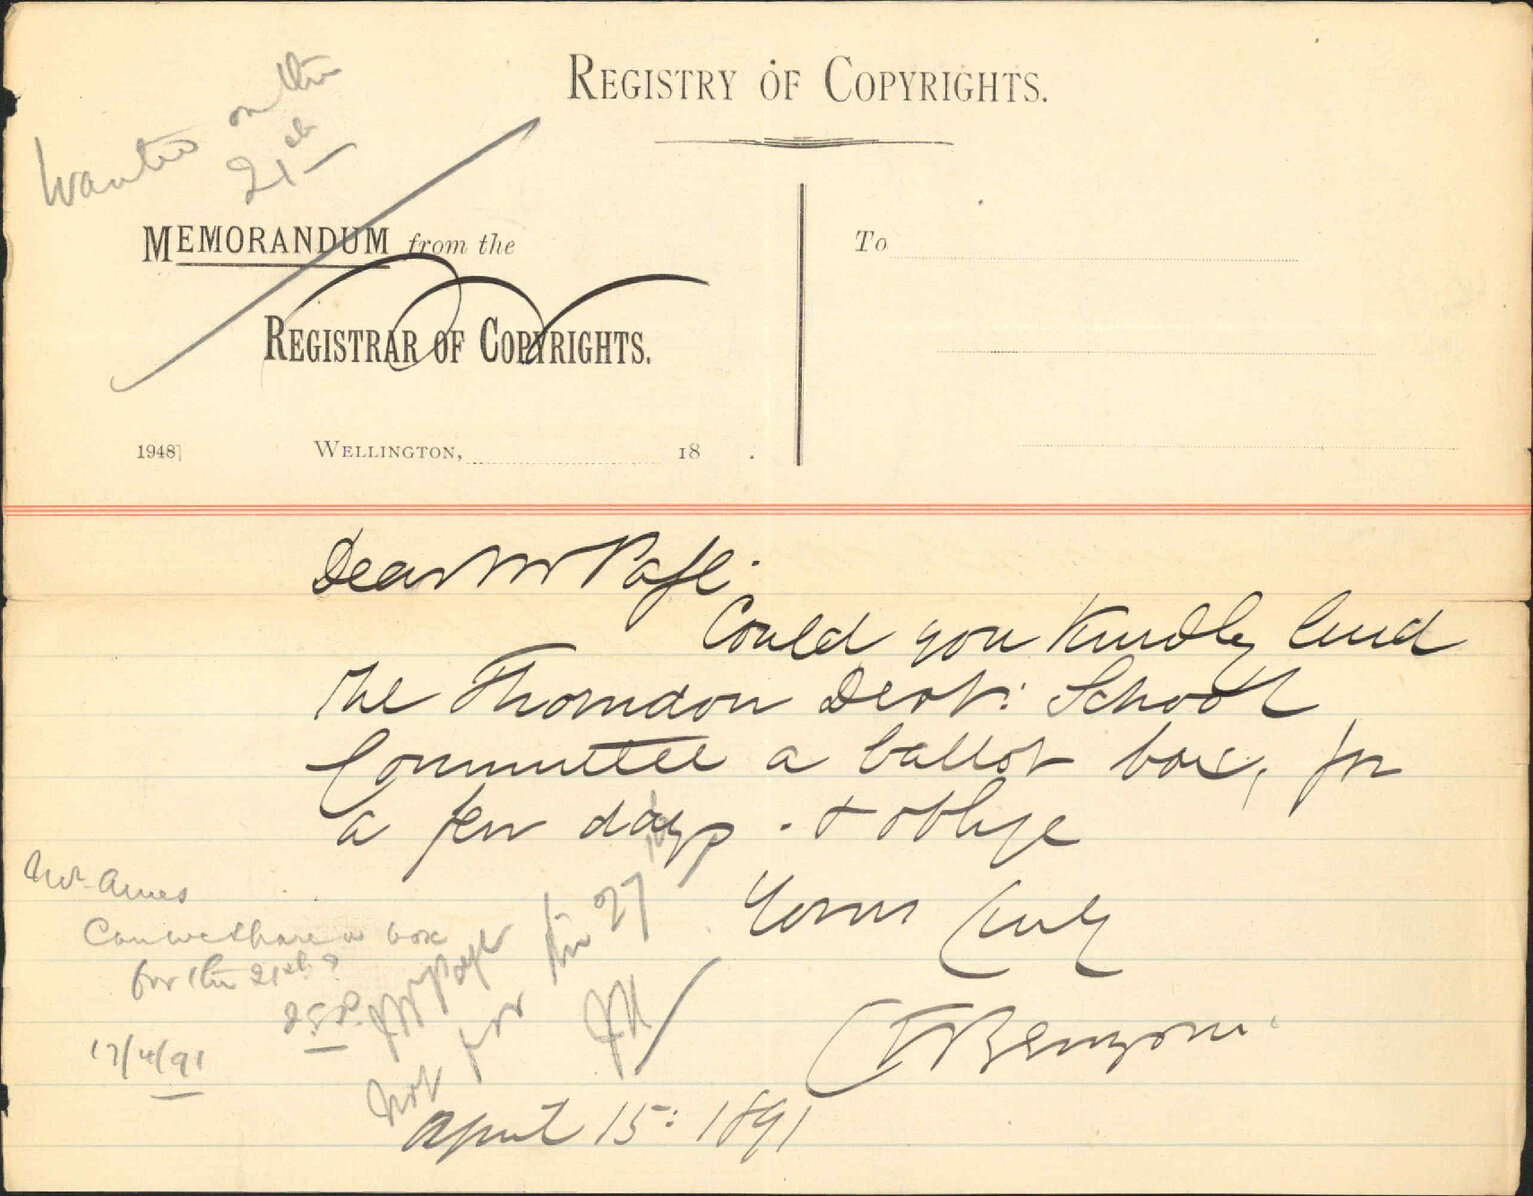 Wanted on the
21st
REGISTRY OF COPYRIGHTS.
MEMORANDUM from the
REGISTRAR OF COPYRIGHTS.
To
1948]
WELLINGTON, 18 .
Dear Mr Page.
Could you kindly lend
the Thorndon Dist: School
Committee a ballot box, for
a few days. & oblige
Yours truly
April 15: 1891
Mr Ames
Can we share a box
for the 21st?
17/4/91
Mr Page
Not for the 27th